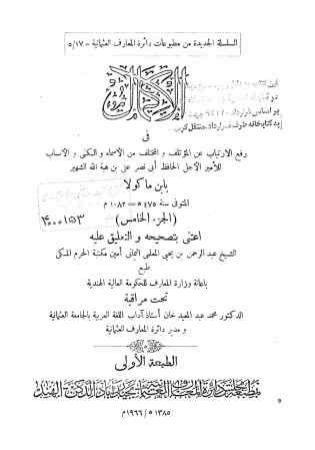 السلسلة الجديدة من مطبوعات دائرة المعارف العثمانية - ٥/١٧
الإكمال
فى
رفع الارتياب عن المؤتلف و المختلف من الأسماء و الكنى و الأنساب
للأمير الأجل الحافظ أبى نصر على بن هبة الله الشهير
بابن ماكولا
المتوفى سنة ٤٧٥ ه = ١٠٨٢ م
(الجزء الخامس)
٤٠٠١٥٣
اعتنى بتصحيحه و التعليق عليه
الشيخ عبد الرحمن بن يحيى المعلمى اليمانى أمين مكتبة الحرم المكى
طبع
باعانة وزارة المعارف للحكومة العالية الهندية
تحت مراقبة
الدكتور محمد عبد المعيد خان أستاذ آداب اللغة العربية بالجامعة العثمانية
و مدير دائرة المعارف العثمانية
الطبعة الأولى
بمطبعة مجلس دائرة المعارف العثمانية بحيدرآباد الدكن الهند
١٣٨٥ ه / ١٩٦٦ م